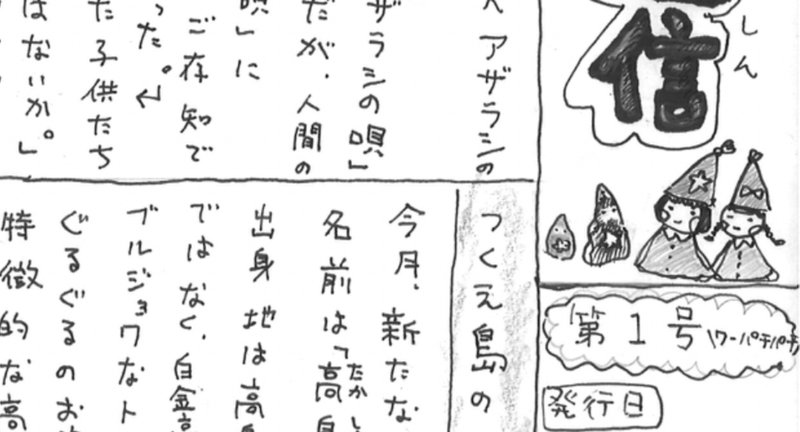 信
しん
第1号
\ワーパチパチ
発行日
アザラシの
ザラシの唄」
だが、人間の
唄」に
ご存知で
った。」
た子供たち
はないか。」
つくえ島の
今月、新たな
名前は「高島
たかし
出身地は高島
ではなく、白金高
ブルジョワなト
ぐるぐるのお
特徴的な高